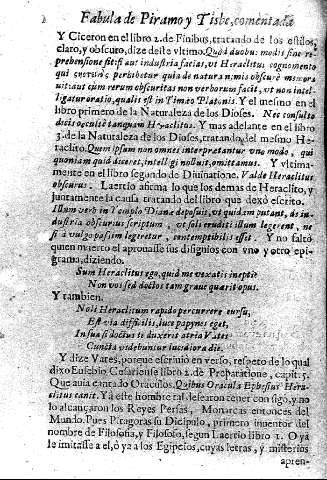 Fabula de Piramo y Tisbe, comentada
Y Ciceron en el libro 2. de Finibus, tratando de los estilos
claro, y obscuro, dize deste vltimo. Quod duobus modis sine re-
prehensione fit: si aut industria facias, vt Heraclitus cognomento
qui perhibetur quia de natura nimis obscurè memora
uit: aut cum rerum obscuritas non verborum facit, vt non intel-
ligatur oratio, qualis est in Timeo Platonis. Y el mesmo en el
libro primero de la Naturaleza de los Dioses. Nec consulto
dicis occultè tanquam Heraclitus. Y mas adelante en el libro
3. de la Naturaleza de los Dioses, tratando del mesmo He-
raclito. Quem ipsum non omnes interpretantur vno modo, qui
quoniam quid diceret, intelligi noluit, omittamus. Y vltima-
mente en el libro segundo de Diuinatione. Valde Heraclitus
obscurus. Laertio afirma lo que los demas de Heraclito, y
juntamente la causa tratando del libro que dexò escrito.
Illum verò in Templo Dianæ deposuit, vt quidam putant, de in-
dustria obscurius scriptum, vt soli eruditi illum legerent, ne
si à vulgo passim legeretur, contemptibilis esset. Y no faltò
quien muerto el apronasse sus disignios con vno y otro epi-
grama, diziendo.
Sum Heraclitus ego, quid me vexatis inepti?
Non vos sed doctos tam graue quærit opus.
Y tambien.
Noli Heraclitum rapido percurrere cursu,
Est via difficilis, luce papyrus eget,
In sua si doctus te duxerit atria Vates
Cuncta videbuntur lucidiora die.
Y dize Vates, porque escriuiò en verso, respeto de lo qual
dixo Eusebio Cesariense libro 2. de Preparatione, capit. 5.
Que auia cantado Oraculos. Quibus Oracula Ephesius Hera-
clitus canit. Y a este hombre tal desearon tener consigo, y no
lo alcançaron los Reyes Persas, Monarcas entonces del
Mundo. Pues Pitagoras su Dicipulo, primero inuentor del
nombre de Filosofia, y Filosofo, segun Laertio libro 1. O ya
le imitasse a el, ò ya a los Egipcios, cuyas letras, y misterios
apren-